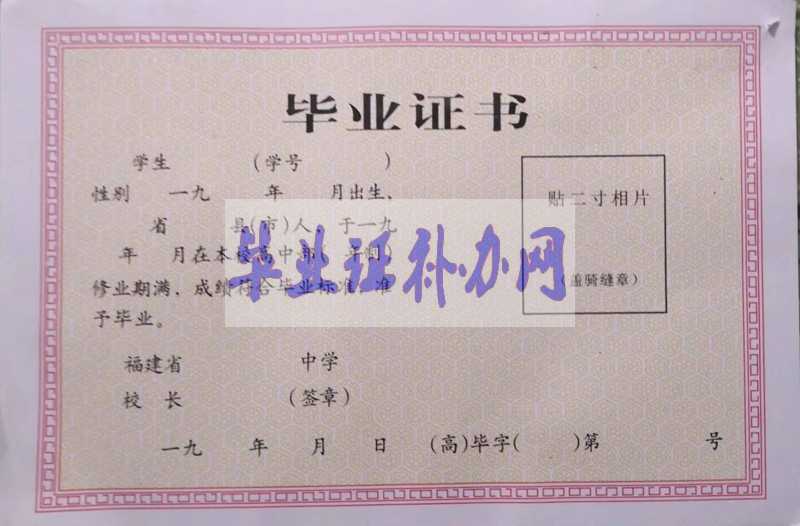 毕业证书
学生 (学号 )
性别 一九 年 月出生、
省 县(市)人，于一九
年 月在本校高中部( 年制)
修业期满，成绩符合毕业标准，准
予毕业。
贴二寸相片
(盖骑缝章)
毕业证补办网
福建省 中学
校 长 (签章)
一九 年 月 日 (高)毕字( )第 号